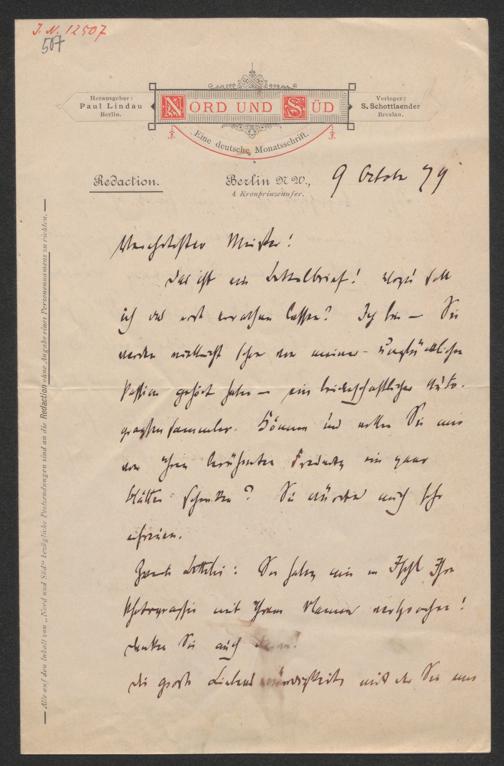 I. N. 12507
507
Herausgeber:
Paul Lindau
Berlin.
NORD UND SÜD
Eine deutsche Monatsschrift.
Verleger:
S. Schottlaender
Breslau.
Redaction.
Berlin N.W.,
4 Kronprinzenufer.
9 October 79
Alle auf den Inhalt von „Nord und Süd“ bezügliche Postsendungen sind an die Redaction ohne Angabe eines Personennamens zu richten.
Verehrtester Meister!
Das ist ein Bettelbrief! Wozu soll
ich das erst errathen lassen? Ich bin — Sie
werden vielleicht schon von meiner unglücklichen
Passion gehört haben — ein leidenschaftlicher Auto-
graphensammler. Können und wollen Sie mir
von Ihren berühmten ein paar
Blätter schenken? Sie würden mich sehr
erfreuen.
Zweite Bettelei: Sie haben mir in Ischl Ihre
Photographie mit Ihrem Namen versprochen!
Denken Sie auch daran!
Die große Liebenswürdigkeit, mit der Sie uns